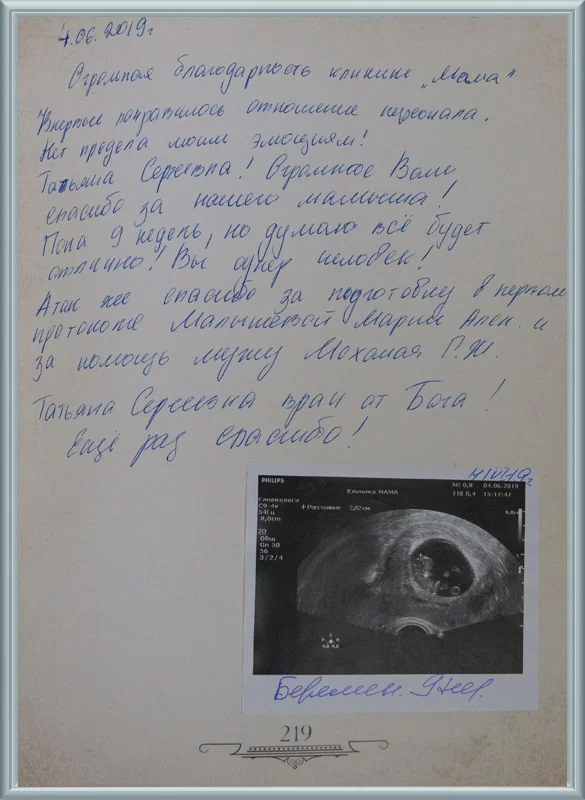 4.06.2019г
Огромная благодарность клинике "Мама"
Впервые понравилось отношение персонала.
Нет предела моим эмоциям!
Татьяна Сергеевна! Огромное Вам
спасибо за нашего малыша!
Пока 9 недель, но думаю всё будет
отлично! Вы супер человек!
А так же спасибо за подготовку в первом
протоколе Малышевой Марии Алек. и
за помощь мужу Г.Ж.
Татьяна Сергеевна врач от Бога!
Ещё раз спасибо!
PHILIPS
Клиника МАМА
MI 0,8 04.06.2019
TIS 0,4 15:17:47
Гинекологи
C9-4v
54Гц
8,0cm
+ Расстояние 2,02см
20
Общ
Gn 50
56
3/2/4
Беремен. 9 нед.
219